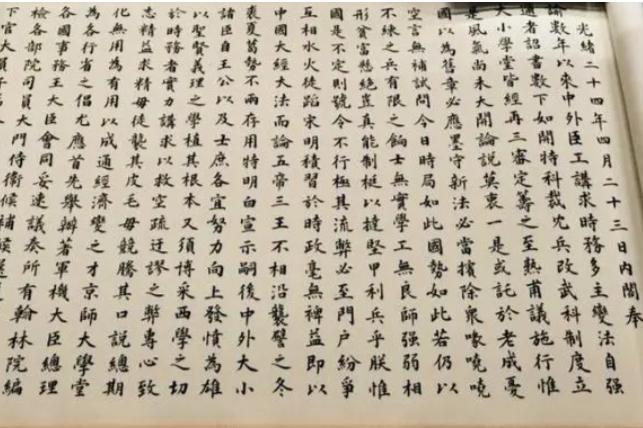 光緒二十四年四月二十三日內閣奉
諭數年以來中外臣工講求時務多主變法自強
邇者詔書數下如開特科裁冗兵改武科制度立
大小學堂皆經再三審定籌之至熟甫議施行惟
是風氣尚未大開論說莫衷一是或託於老成憂
國以為舊章必應墨守新法必當擯除眾喙嘵嘵
空言無補試問今日時局如此國勢如此若仍以
不練之兵有限之餉士無實學工無良師強弱相
形貧富懸絕豈真能制梃以撻堅甲利兵乎朕惟
國是不定則號令不行極其流弊必至門戶紛爭
互相水火徒蹈宋明積習於時政毫無裨益即以
中國大經大法而論五帝三王不相沿襲譬之冬
裘夏葛勢不兩存用特明白宣示嗣後中外大小
諸臣自王公以及士庶各宜努力向上發憤為雄
以聖賢義理之學植其根本又須博采西學之切
於時務者實力講求以救空疏迂謬之弊專心致
志精益求精毋徒襲其皮毛毋競騰其口說總期
化無用為有用以成通經濟變之才京師大學堂
為各行省之倡尤應首先舉辦著軍機大臣總理
各國事務王大臣會同妥速議奏所有翰林院編
檢各部院司員大門侍衛候補候選
下官大員子